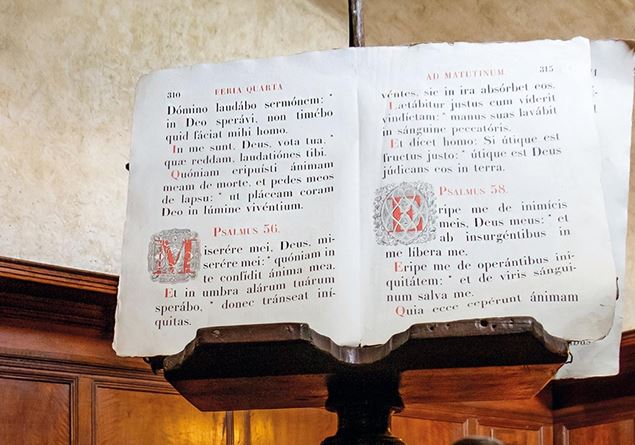 310 FERIA QUARTA
Dómino laudábo sermónem: *
in Deo sperávi, non timébo
quid fáciat mihi homo.
In me sunt, Deus, vota tua, *
quæ reddam, laudatiónes tibi.
Quóniam eripuísti ánimam
meam de morte, et pedes meos
de lapsu: * ut pláceam coram
Deo in lúmine vivéntium.
PSALMUS 56.
Miserére mei, Deus, mi-
serére mei: * quóniam in
te confídit ánima mea.
Et in umbra alárum tuárum
sperábo, * donec tránseat iní-
quitas.
AD MATUTINUM. 315
véntes, sic in ira absórbet eos.
Lætábitur justus cum víderit
vindíctam: * manus suas lavábit
in sánguine peccatóris.
Et dicet homo: Si útique est
fructus justo: * útique est Deus
júdicans eos in terra.
PSALMUS 58.
Eripe me de inimícis
meis, Deus meus: * et
ab insurgéntibus in
me líbera me.
Eripe me de operántibus iní-
quitátem: * et de viris sángui-
num salva me.
Quia ecce cepérunt ánimam